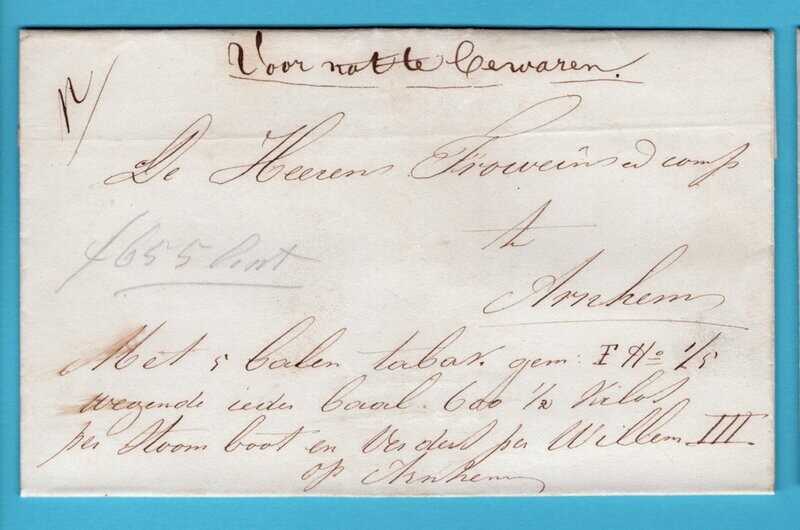 Voor natte bewaren.
De Heeren Frowein en comp
te
Arnhem
Met 5 balen tabak. gem: F No 1/5
wegende ieder baal 600 1/2 Kilos
per Stoomboot en verders per Willem III
op Arnhem